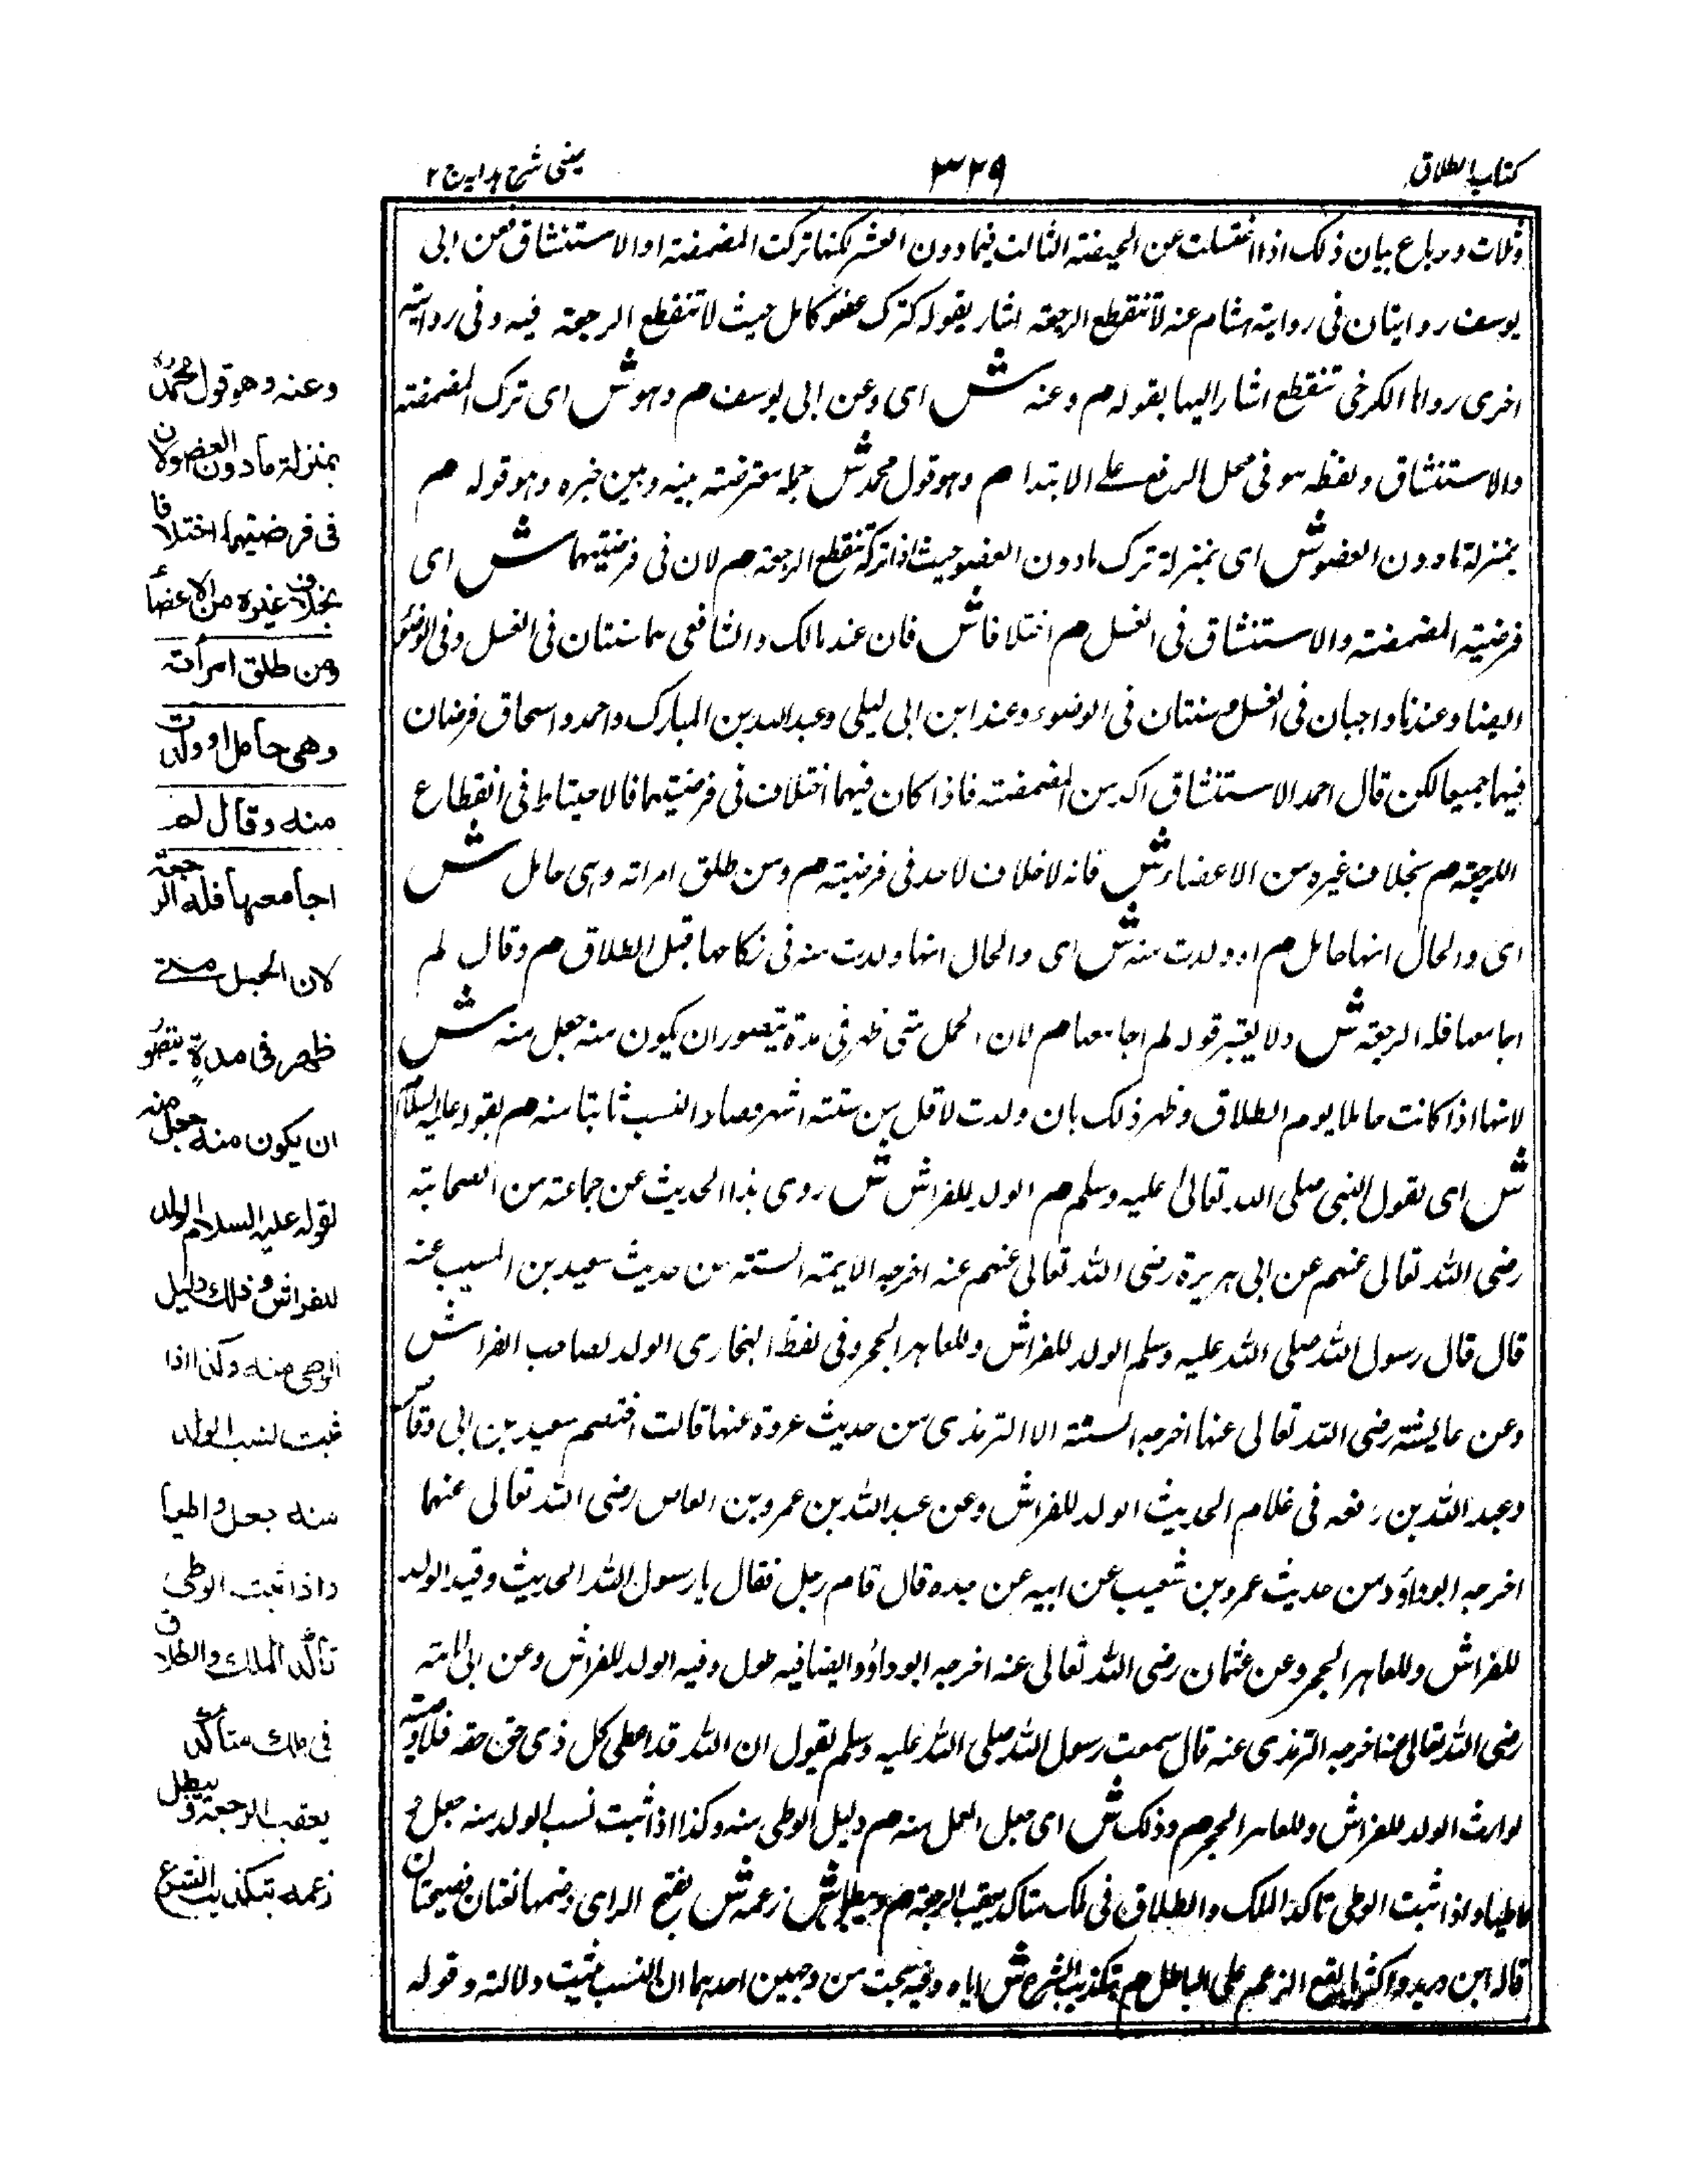 كتاب الطلاق
٣٢٩
عينى شرح هدايه ج ٢
وثلاث ورباع بيان ذلك اذا اغتسلت عن الحيضة الثالث فيما دون العشر لكنها تركت المضمضة او الاستنشاق فعن ابى
يوسف روايتان فى رواية هشام عنه لا تنقطع الرجعة اشار بقوله كترك عضو كامل حيث لا تنقطع الرجعة فيه وفى رواية
اخرى رواها الكرخى تنقطع اشار اليها بقوله م وعنه ش اى وعن ابى يوسف م وهو ش اى ترك المضمضة
والاستنشاق ولفظه هو فى محل الرفع على الابتدا م وهو قول محمد ش جملة معترضة بينه وبين خبره وهو قوله م
بمنزلة ما دون العضو ش اى بمنزلة ترك ما دون العضو حيث اذا تركه تنقطع الرجعة م لان فى فرضيتهما ش اى
فرضية المضمضة والاستنشاق فى الغسل م اختلافا ش فان عند مالك والشافعى هما سنتان فى الغسل وفى الوضوء
ايضا وعندنا واجبان فى الغسل وسنتان فى الوضوء وعند ابن ابى ليلى وعبد الله بن المبارك واحمد واسحاق فرضان
فيهما جميعا لكن قال احمد الاستنشاق اكد من المضمضة فاذا كان فيهما اختلاف فى فرضيتهما فالاحتياط فى انقطاع
الرجعة م بخلاف غيره من الاعضاء ش فانه لا خلاف لاحد فى فرضيته م ومن طلق امراته وهى حامل ش
اى والحال انها حامل م او ولدت منه ش اى والحال انها ولدت منه فى نكاحها قبل الطلاق م وقال لم
اجامعها فله الرجعة ش ولا يعتبر قوله لم اجامعها م لان الحمل متى ظهر فى مدة يتصور ان يكون منه جعل منه ش
لانها اذا كانت حاملا يوم الطلاق وظهر ذلك بان ولدت لاقل من ستة اشهر فصار النسب ثابتا منه م بقوله عليه السلام
ش اى لقول النبى صلى الله تعالى عليه وسلم م الولد للفراش ش روى هذا الحديث عن جماعة من الصحابة
رضى الله تعالى عنهم عن ابى هريرة رضى الله تعالى عنهم عنه اخرجه الايمة الستة من حديث سعيد بن المسيب عنه
قال قال رسول الله صلى الله عليه وسلم الولد للفراش وللعاهر الحجر وفى لفظ البخارى الولد لصاحب الفراش
وعن عايشة رضى الله تعالى عنها اخرجه الستة الا الترمذى من حديث عروة عنها قالت اختصم سعيد بن ابى وقاص
وعبد الله بن زمعه فى غلام الحديث الولد للفراش وعن عبد الله بن عمرو بن العاص رضى الله تعالى عنهما
اخرجه ابو داؤد من حديث عمرو بن شعيب عن ابيه عن جده قال قام رجل فقال يا رسول الله الحديث وفيه الولد
للفراش وللعاهر الحجر وعن عثمان رضى الله تعالى عنه اخرجه ابو داؤد ايضا فيه طول وفيه الولد للفراش وعن ابى امامة
رضى الله تعالى عنه اخرجه الترمذى عنه قال سمعت رسول الله صلى الله عليه وسلم يقول ان الله قد اعطى كل ذى حق حقه فلا وصية
لوارث الولد للفراش وللعاهر الحجر م وذلك ش اى جعل الحمل منه م دليل الوطى منه وكذا اذا ثبت نسب الولد منه جعل
واطيا واذا ثبت الوطى تاكد الملك والطلاق فى ملك متاكد يعقب الرجعة م ويبطل ش زعمه ش بفتح الزاى وضمها لغتان فصيحتان
قاله ابن دريد واكثر ما يقع الزعم على الباطل م بتكذيب الشرع ش اياه وفيه بحث من وجهين احدهما ان النسب يثبت دلالة وقوله
وعنه وهو قول محمد
بمنزلة ما دون العضو لان
فى فرضيتهما اختلافا
بخلاف غيره من الاعضاء
ومن طلق امرأته
وهى حامل او ولدت
منه وقال لم
اجامعها فله الرجعة
لان الحبل متى
ظهر فى مدةٍ يتصور
ان يكون منه جعل منه
لقوله عليه السلام الولد
للفراش وذلك دليل
الوطى منه وكذا اذا
ثبت نسب الولد
منه جعل واطيا
واذا ثبت الوطى
تأكد الملك والطلاق
فى ملك متأكد
يعقب الرجعة ويبطل
زعمه بتكذيب الشرع